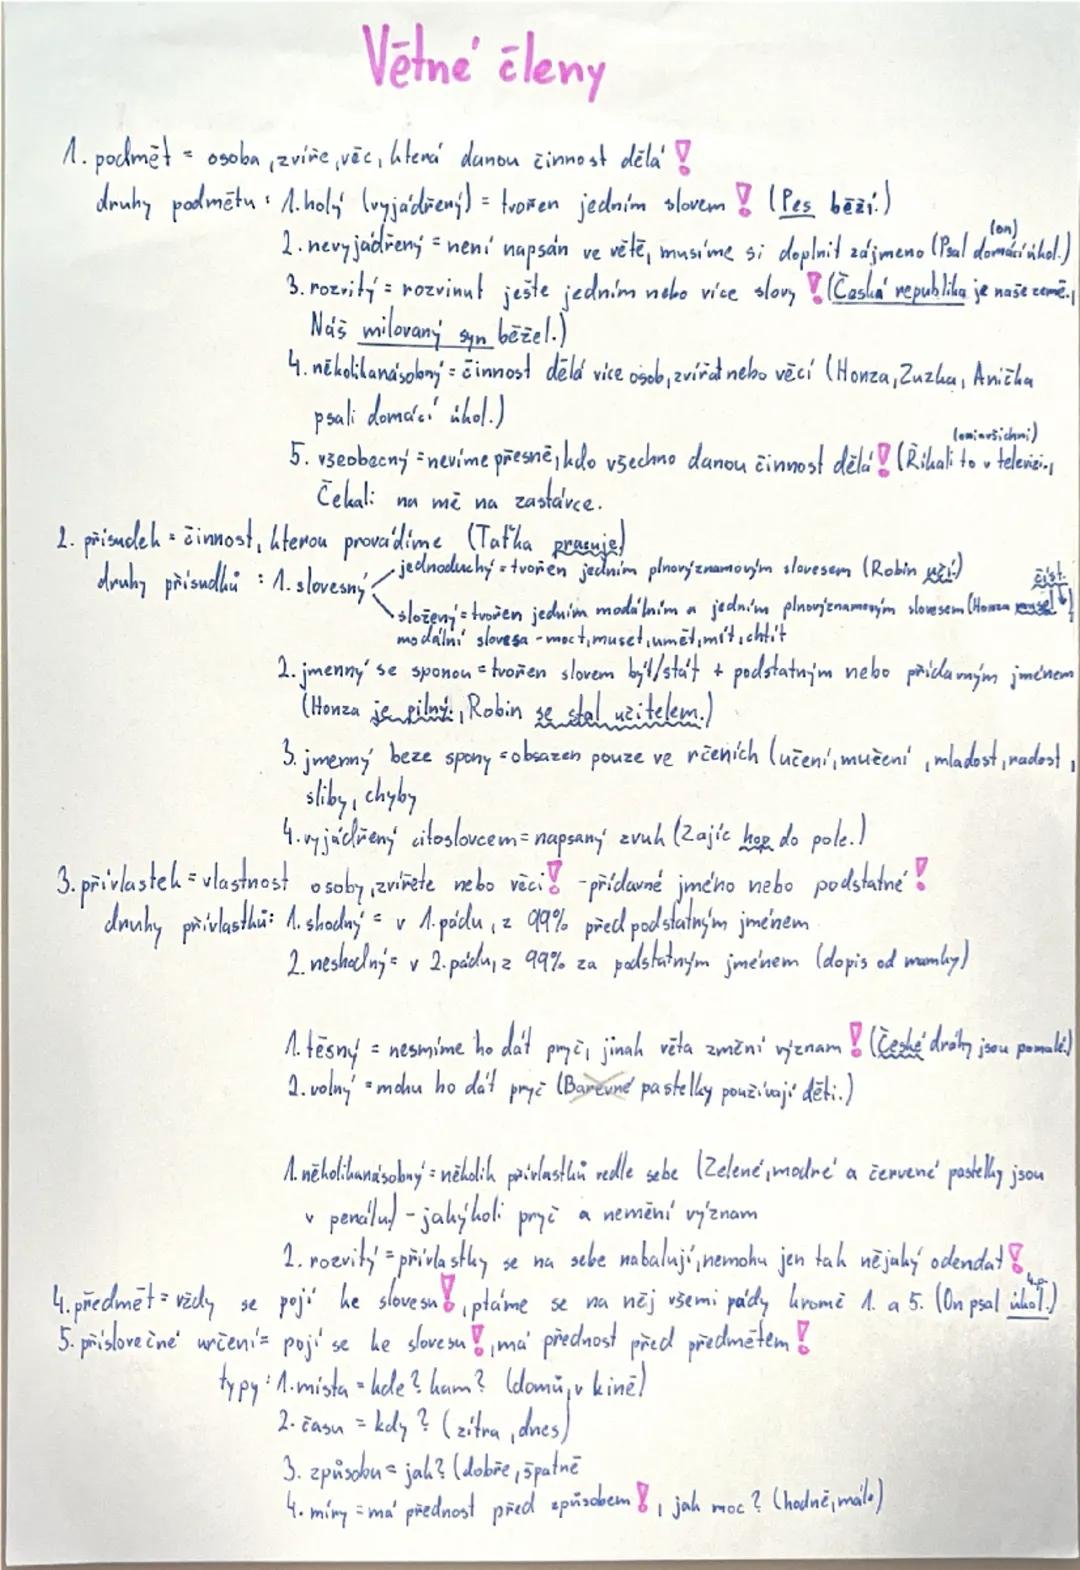 Větné členy
1. podmět = osoba, zvíře, věc, která danou činnost dělá !
druhy podmětu : 1. holý (vyjádřený) = tvořen jedním slovem ! (Pes běží.)
(on)
2. nevyjádřený = není napsán ve větě, musíme si doplnit zájmeno (Psal domácí úkol.)
3. rozvitý = rozvinut ješte jedním nebo více slovy ! (Česká republika je naše země.,
Náš milovaný syn běžel.)
4. několikanásobný = činnost dělá více osob, zvířat nebo věcí (Honza, Zuzka, Anička
psali domácí úkol.)
(oni všichni)
5. všeobecný = nevíme přesně, kdo všechno danou činnost dělá ! (Říkali to v televizi.,
Čekali na mě na zastávce.
2. přísudek = činnost, kterou provádíme (Taťka pracuje)
druhy přísudků : 1. slovesný jednoduchý = tvořen jedním plnovýznamovým slovesem (Robin učí.)
číst.
složený = tvořen jedním modálním a jedním plnovýznamovým slovesem (Honza musel)
modální slovesa - moct, muset, umět, mít, chtít
2. jmenný se sponou = tvořen slovem být/stát + podstatným nebo přídavným jménem
(Honza je pilný., Robin se stal učitelem.)
3. jmenný beze spony = obsazen pouze ve rčeních (učení, mučení, mladost, radost,
sliby, chyby
4. vyjádřený citoslovcem = napsaný zvuk (Zajíc hop do pole.)
3. přívlastek = vlastnost osoby, zvířete nebo věci ! - přídavné jméno nebo podstatné !
druhy přívlastků: 1. shodný = v 1. pádu, z 99% před podstatným jménem
2. neshodný = v 2. pádu, z 99% za podstatným jménem (dopis od mamky)
1. těsný = nesmíme ho dát pryč, jinak věta změní význam ! (České dráhy jsou pomalé.)
2. volný = mohu ho dát pryč (Barevné pastelky používají děti.)
1. několikanásobný = několik přívlastků vedle sebe (Zelené, modré a červené pastelky jsou
v penálu) - jakýkoli pryč a nemění význam
2. rozvitý = přívlastky se na sebe nabalují, nemohu jen tak nějaký odendat !
4.p.
4. předmět = vždy se pojí ke slovesu !, ptáme se na něj všemi pády kromě 1. a 5. (On psal úkol.)
5. příslovečné určení = pojí se ke slovesu !, má přednost před předmětem !
typy : 1. místa = kde? kam? (domů, v kině)
2. času = kdy? (zítra, dnes)
3. způsobu = jak? (dobře, špatně
4. míry = má přednost před způsobem !, jak moc? (hodně, málo)